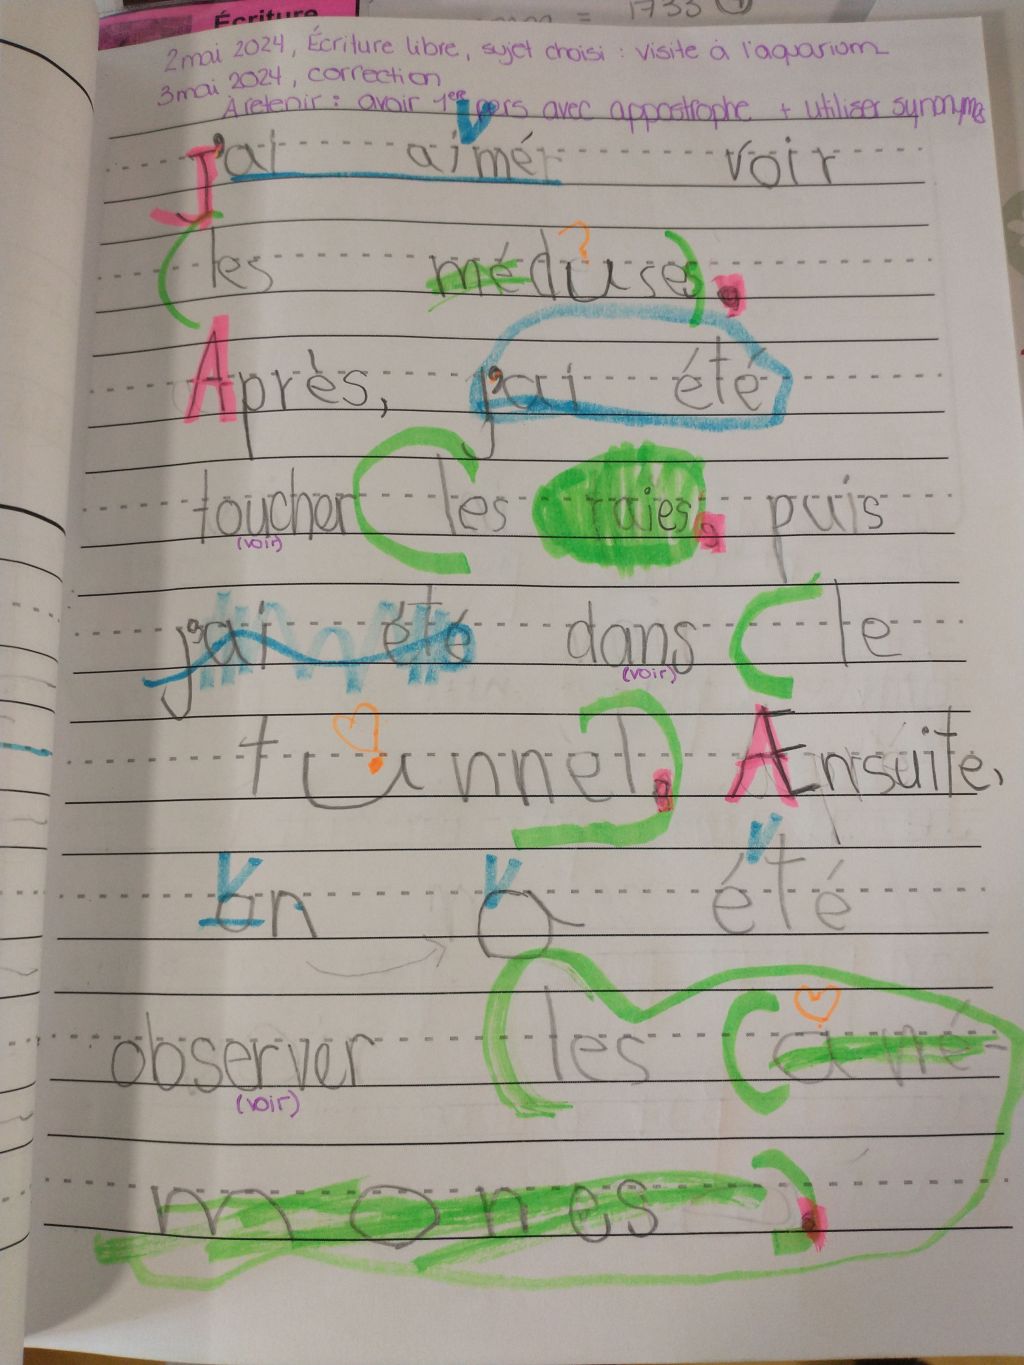 Écriture
= 1733
2 mai 2024, Écriture libre, sujet choisi : visite à l'aquarium
3 mai 2024, correction
À retenir : avoir 1ere pers avec appostrophe + utiliser synonymes
V
J'ai aimé voir
?
(les méduses).
Après, j'ai été
toucher (les raies, puis
(voir)
j'ai été dans (le
(voir)
tunnel). Ensuite,
V V V
on a été
observer (les (ané-
(voir)
mones).